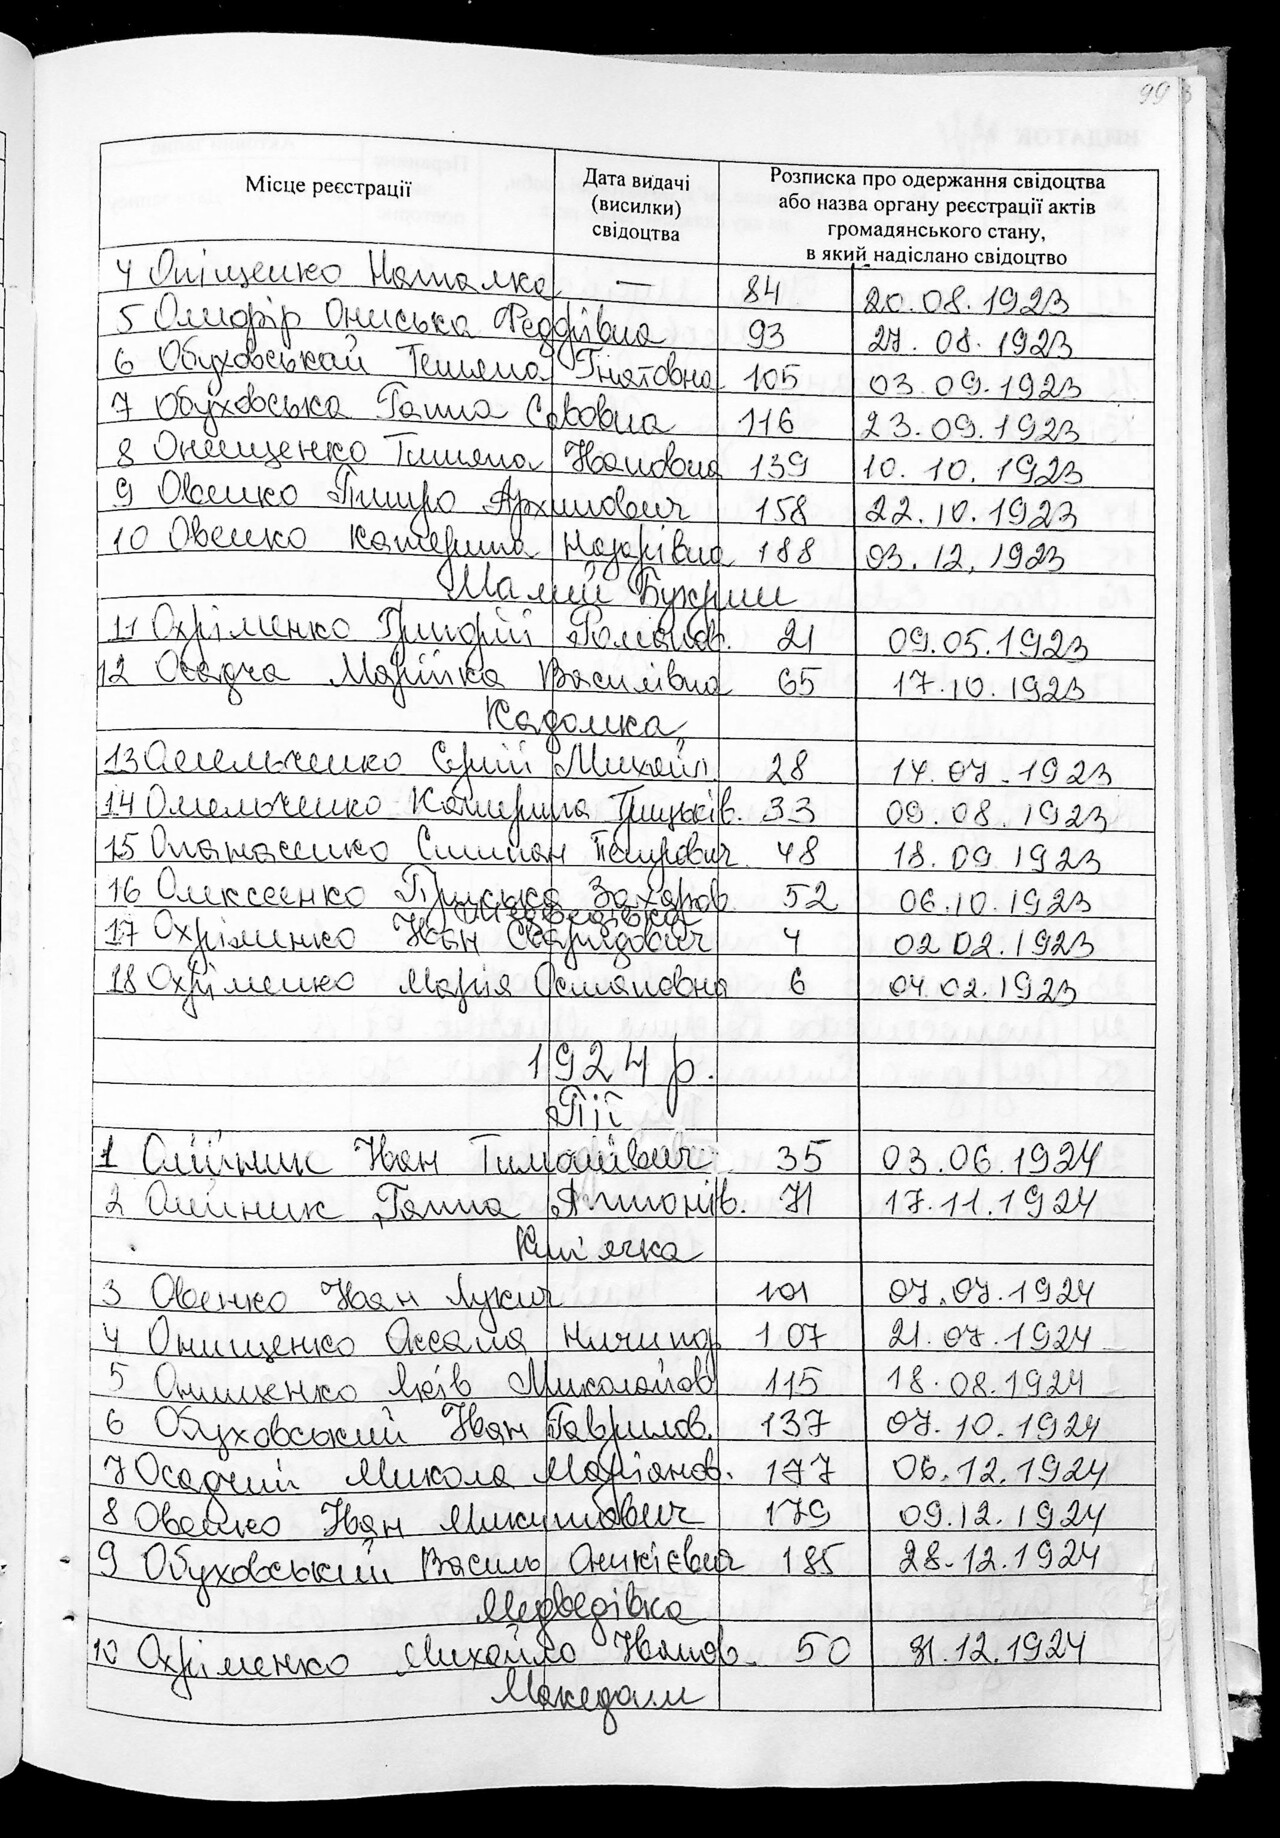 99
Місце реєстрації
Дата видачі
(висилки)
свідоцтва
Розписка про одержання свідоцтва
або назва органу реєстрації актів
громадянського стану,
в який надіслано свідоцтво
4 Оніщенко Наталка — 84 20.08.1923
5 Олифір Ониська Федорівна 93 27.08.1923
6 Обуховський Тетяна Гнатовна 105 03.09.1923
7 Обуховська Ганна Савовна 116 23.09.1923
8 Онищенко Тетяна Івановна 139 10.10.1923
9 Овсенко Петро Архипович 158 22.10.1923
10 Овсенко Катерина Назарівна 188 03.12.1923
Малий Букрин
11 Охріменко Григорій Романов. 21 09.05.1923
12 Осадча Марійка Василівна 65 17.10.1923
Кадомка
13 Омельченко Сергій Михайл. 28 14.07.1923
14 Омельченко Катерина Грицьків. 33 09.08.1923
15 Опанасенко Степан Петрович 48 18.09.1923
16 Олексеенко Пріська Захаров. 52 06.10.1923
Медведівка
17 Охріменко Іван Свиридович 4 02.02.1923
18 Охріменко Марія Остаповна 6 04.02.1923
1924 р.
Пії
1 Олійник Іван Тимофійович 35 03.06.1924
2 Олійник Ганна Антонів. 71 17.11.1924
Кип'ячка
3 Овсенко Іван Лукич 101 07.07.1924
4 Онищенко Оксана Ничипор. 107 21.07.1924
5 Онищенко Яків Миколайов 115 18.08.1924
6 Обуховський Іван Гаврилов. 137 07.10.1924
7 Осадчий Микола Маріанов. 177 06.12.1924
8 Овсенко Іван Микитович 179 09.12.1924
9 Обуховський Василь Оникієвич 185 28.12.1924
Медведівка
10 Охріменко Михайло Іванов. 50 31.12.1924
Македони